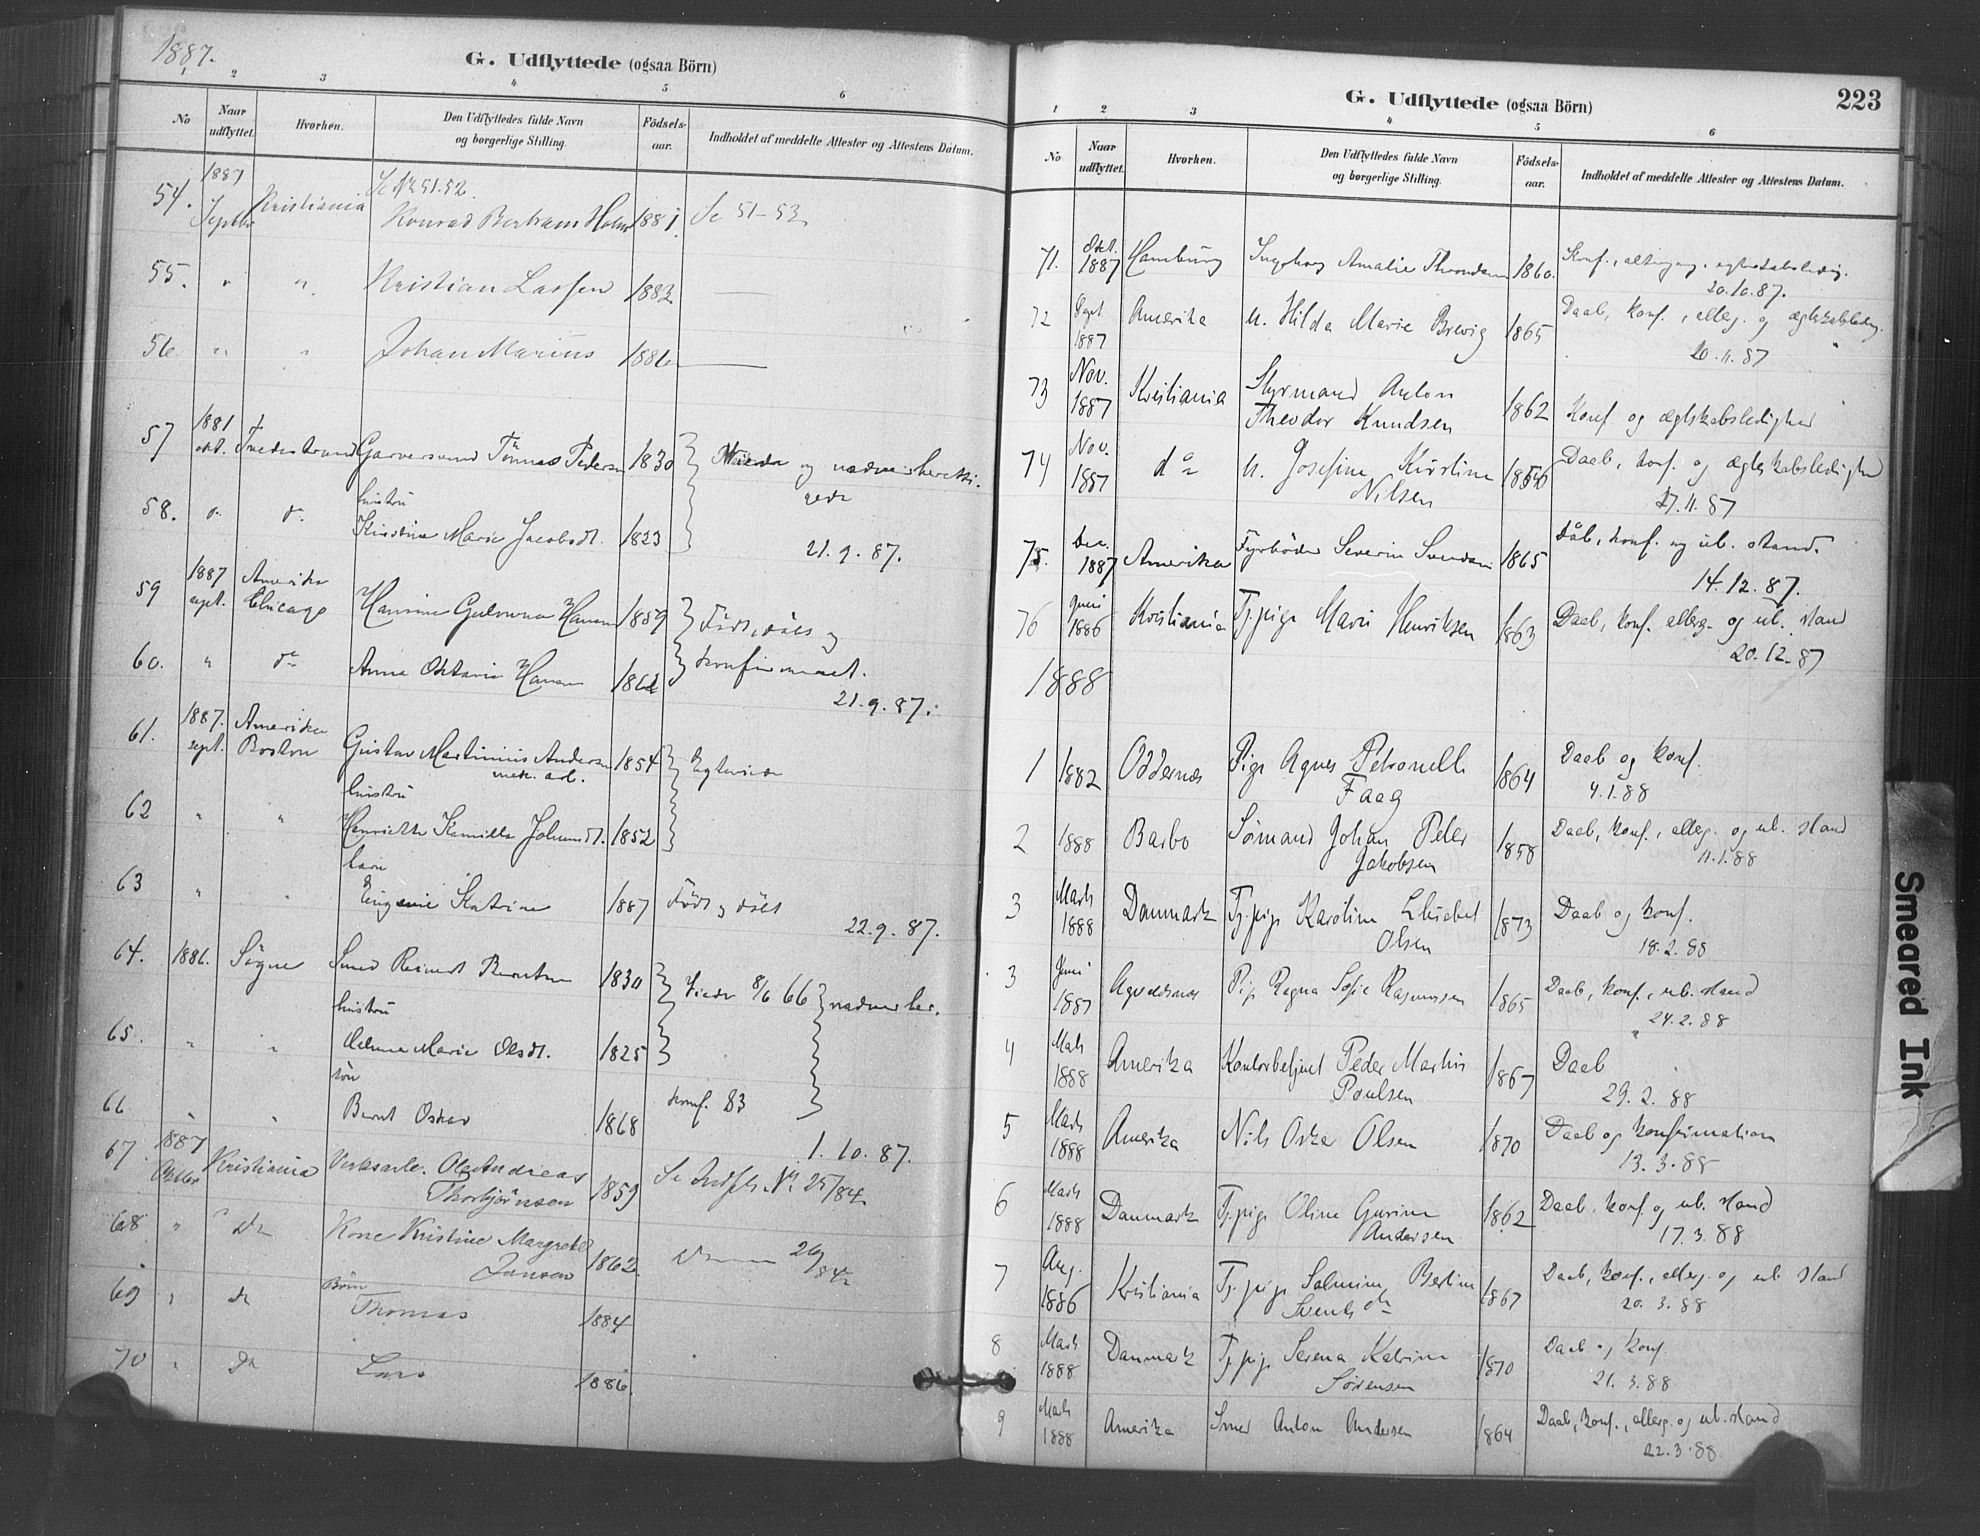 1887.
G. Udflyttede (ogsaa Börn)
1 2 3 4 5 6
No Naar udflyttet. Hvorhen. Den Udflyttedes fulde Navn og borgerlige Stilling. Födsels-aar. Indholdet af meddelte Attester og Attestens Datum.
Se No 51.52.
54. 1887 Septbr Kristiania Konrad Bertram Holm 1881. Se 51-53
55. " " Kristian Lassen 1883 —
56 " " Johan Marius 1886 —
57 1881 okt. Tvedestrand Garversvend Tönnes Pedersen 1830 Viede og nadverberetti-
gede
hustru
58. do. do. Kirstine Marie Jacobsdt. 1823
21.9.87.
59 1887 sept. Amerika Chicago Hansine Gulowna Hansen 1859 Födt, döbt og
60. " do Anna Oktavia Hansen 1862 konfirmeret.
21.9.87.
61. 1887. sept. Amerika Boston Gustav Martinius Andersen 1854 Egteviede
mek. arb.
hustru
62 " " Henriette Kamilla Johnsdt. 1852
barn
63 " " Eugenie Katrine 1887 Födt og döbt
22.9.87.
64. 1886. Sögne Smed Reinert Berntsen 1830 Viede 8/6 66 nadver ber.
hustru
65. " " Helene Marie Olsdt. 1825
sön
66 " " Bernt Oskar 1868 konf. 83
1.10.87.
67. 1887 Oktbr Kristiania Verksarb. Ole Andreas
Thorbjörnsen 1859 Se Indfl. No 25/84
68 " " do Kone Kristine Margrethe
Jensen 1862. do — 26/84
Börn
69 " do Thomas 1884
70 " do Lars 1886.
223
G. Udflyttede (ogsaa Börn)
1 2 3 4 5 6
No Naar udflyttet. Hvorhen. Den Udflyttedes fulde Navn og borgerlige Stilling. Födsels-aar. Indholdet af meddelte Attester og Attestens Datum.
71. Okt. 1887 Hamburg Ingeborg Amalie Thorndsen 1860. Konf., altergang, ægteskabsledig.
20.10.87.
72 Sept 1887 Amerika u. Hilda Marie Brevig 1865 Daab, konf., allerg. og ægteskabsledig.
20.11.87
73 Nov. 1887 Kristiania Styrmand Anton
Theodor Knudsen 1862 Konf. og ægteskabsledighed
74 Nov. 1887 do u. Josefine Kirstine
Nilsen Daab, konf. og ægteskabsledighed
27.11.87
75. Dec. 1887 Amerika Fyrböder Severin Svendsen 1865 Dåb, konf. og ub. stand.
14.12.87.
76 Juni 1886 Kristiania Tj.pige Marie Henriksen 1863 Daab, konf. allerg. og ub. stand
20.12.87
1888
1 1882 Oddernæs Pige Agnes Petronelle
Faag 1864 Daab og konf.
4.1.88
2 1888 Barbo Sømand Johan Peter
Jakobsen 1858 Daab, konf., allerg. og ub. stand
11.1.88
3 Marts 1888 Danmark Tj.pige Karoline Elisabet
Olsen 1873 Daab og konf.
18.2.88
3 Juni 1887 Pige Regna Sofie Rasmussen 1865 Daab, konf., ub. stand
24.2.88
4 Mats 1888 Amerika Kontorbetjent Peder Martin
Poulsen 1867 Daab
29.2.88
5 Marts 1888 Amerika Nils Oskar Olsen 1870 Daab og konfirmation
13.3.88
6 Marts 1888 Danmark Tj.pige Oline Gurine
Andersen 1862 Daab, konf og ub. stand
17.3.88
7 Aug. 1886 Kristiania Tj.pige Salmine Bertine
Svends dtr 1867 Daab, konf., allerg. og ub stand
20.3.88
8 Marts 1888 Danmark Tj.pige Serena Katrine
Sörensen 1870 Daab og konf.
21.3.88
9 Marts 1888 Amerika Smed Anton Andersen 1864 Daab, konf., allerg. og ub. stand
22.3.88
Smeared Ink